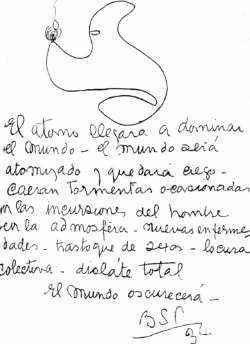 El atomo llegara a dominar
el mundo - el mundo será
atomizado y quedará ciego -
caeran tormentas ocasionadas
en las incursiones del hombre
en la admosfera - nuevas enferme
dades - trastoque de sexos - locura
colectiva - dislate total
El mundo oscurecerá -
BSP